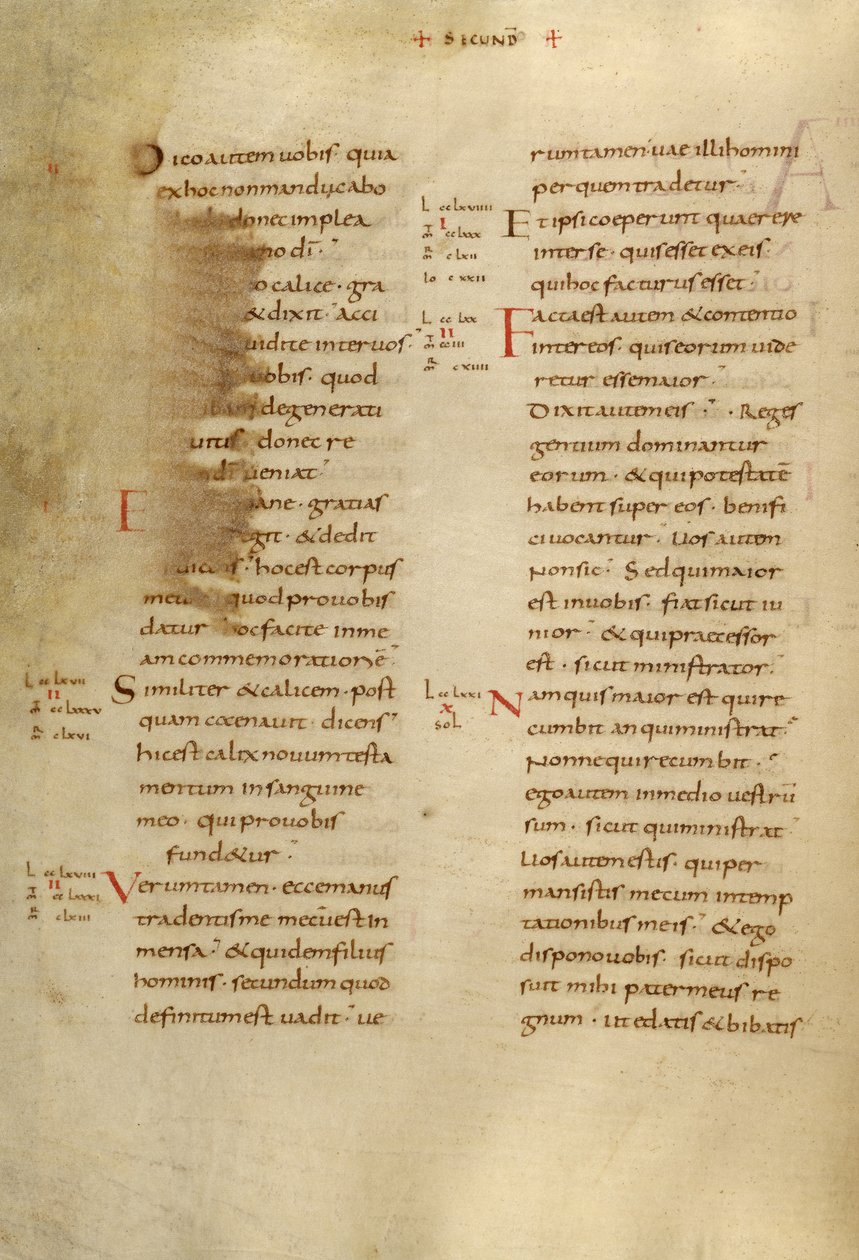 + SECUND̄ +
Dico autem uobis · quia
ex hoc non manducabo
donec implea
no dī ·
o calice · gra
& dixit · Acci
uidite inter uos ·
uobis · quod
de generati
uitis · donec re
dī ueniat
E ane · gratias
git · & dedit
hoc est corpus
quod pro uobis
datur hoc facite in me
am commemorationē
L cc lxvii
II
M cc lxxxv
MR c lxvi
Similiter & calicem · post
quam coenauit · dicens
hic est calix nouum testa
mentum in sanguine
meo · qui pro uobis
fund&ur ·
L cc lxviii
II
M cc lxxxi
MR c lxiii
Verumtamen · ecce manus
tradentis me mecū est in
mensa · & quidem filius
hominis · secundum quod
definitum est uadit · ue
rumtamen · uae illi homini
per quem tradetur ·
L cc lxviiii
I
M cc lxxx
MR c lxii
Io c xxii
Et ipsi coeperunt quaerere
inter se · quis esset ex eis ·
qui hoc facturus esset ·
L cc lxx
II
M cc iii
MR c xiiii
Facta est autem & contentio
inter eos · quis eorum uide
retur esse maior ·
Dixit autem eis · Reges
gentium dominantur
eorum · & qui potestatē
habent super eos · benifi
ci uocantur · Uos autem
non sic · Sed qui maior
est in uobis · fiat sicut iu
nior · & qui praecessor
est · sicut ministrator ·
L cc lxxi
X
soL
Nam quis maior est qui re
cumbit an qui ministrat ·
Nonne qui recumbit ·
ego autem in medio uestrū
sum · sicut qui ministrat
Uos autem estis · qui per
mansistis mecum in temp
tationibus meis · & ego
dispono uobis · sicut dispo
suit mihi pater meus re
gnum · ut edatis & bibatis